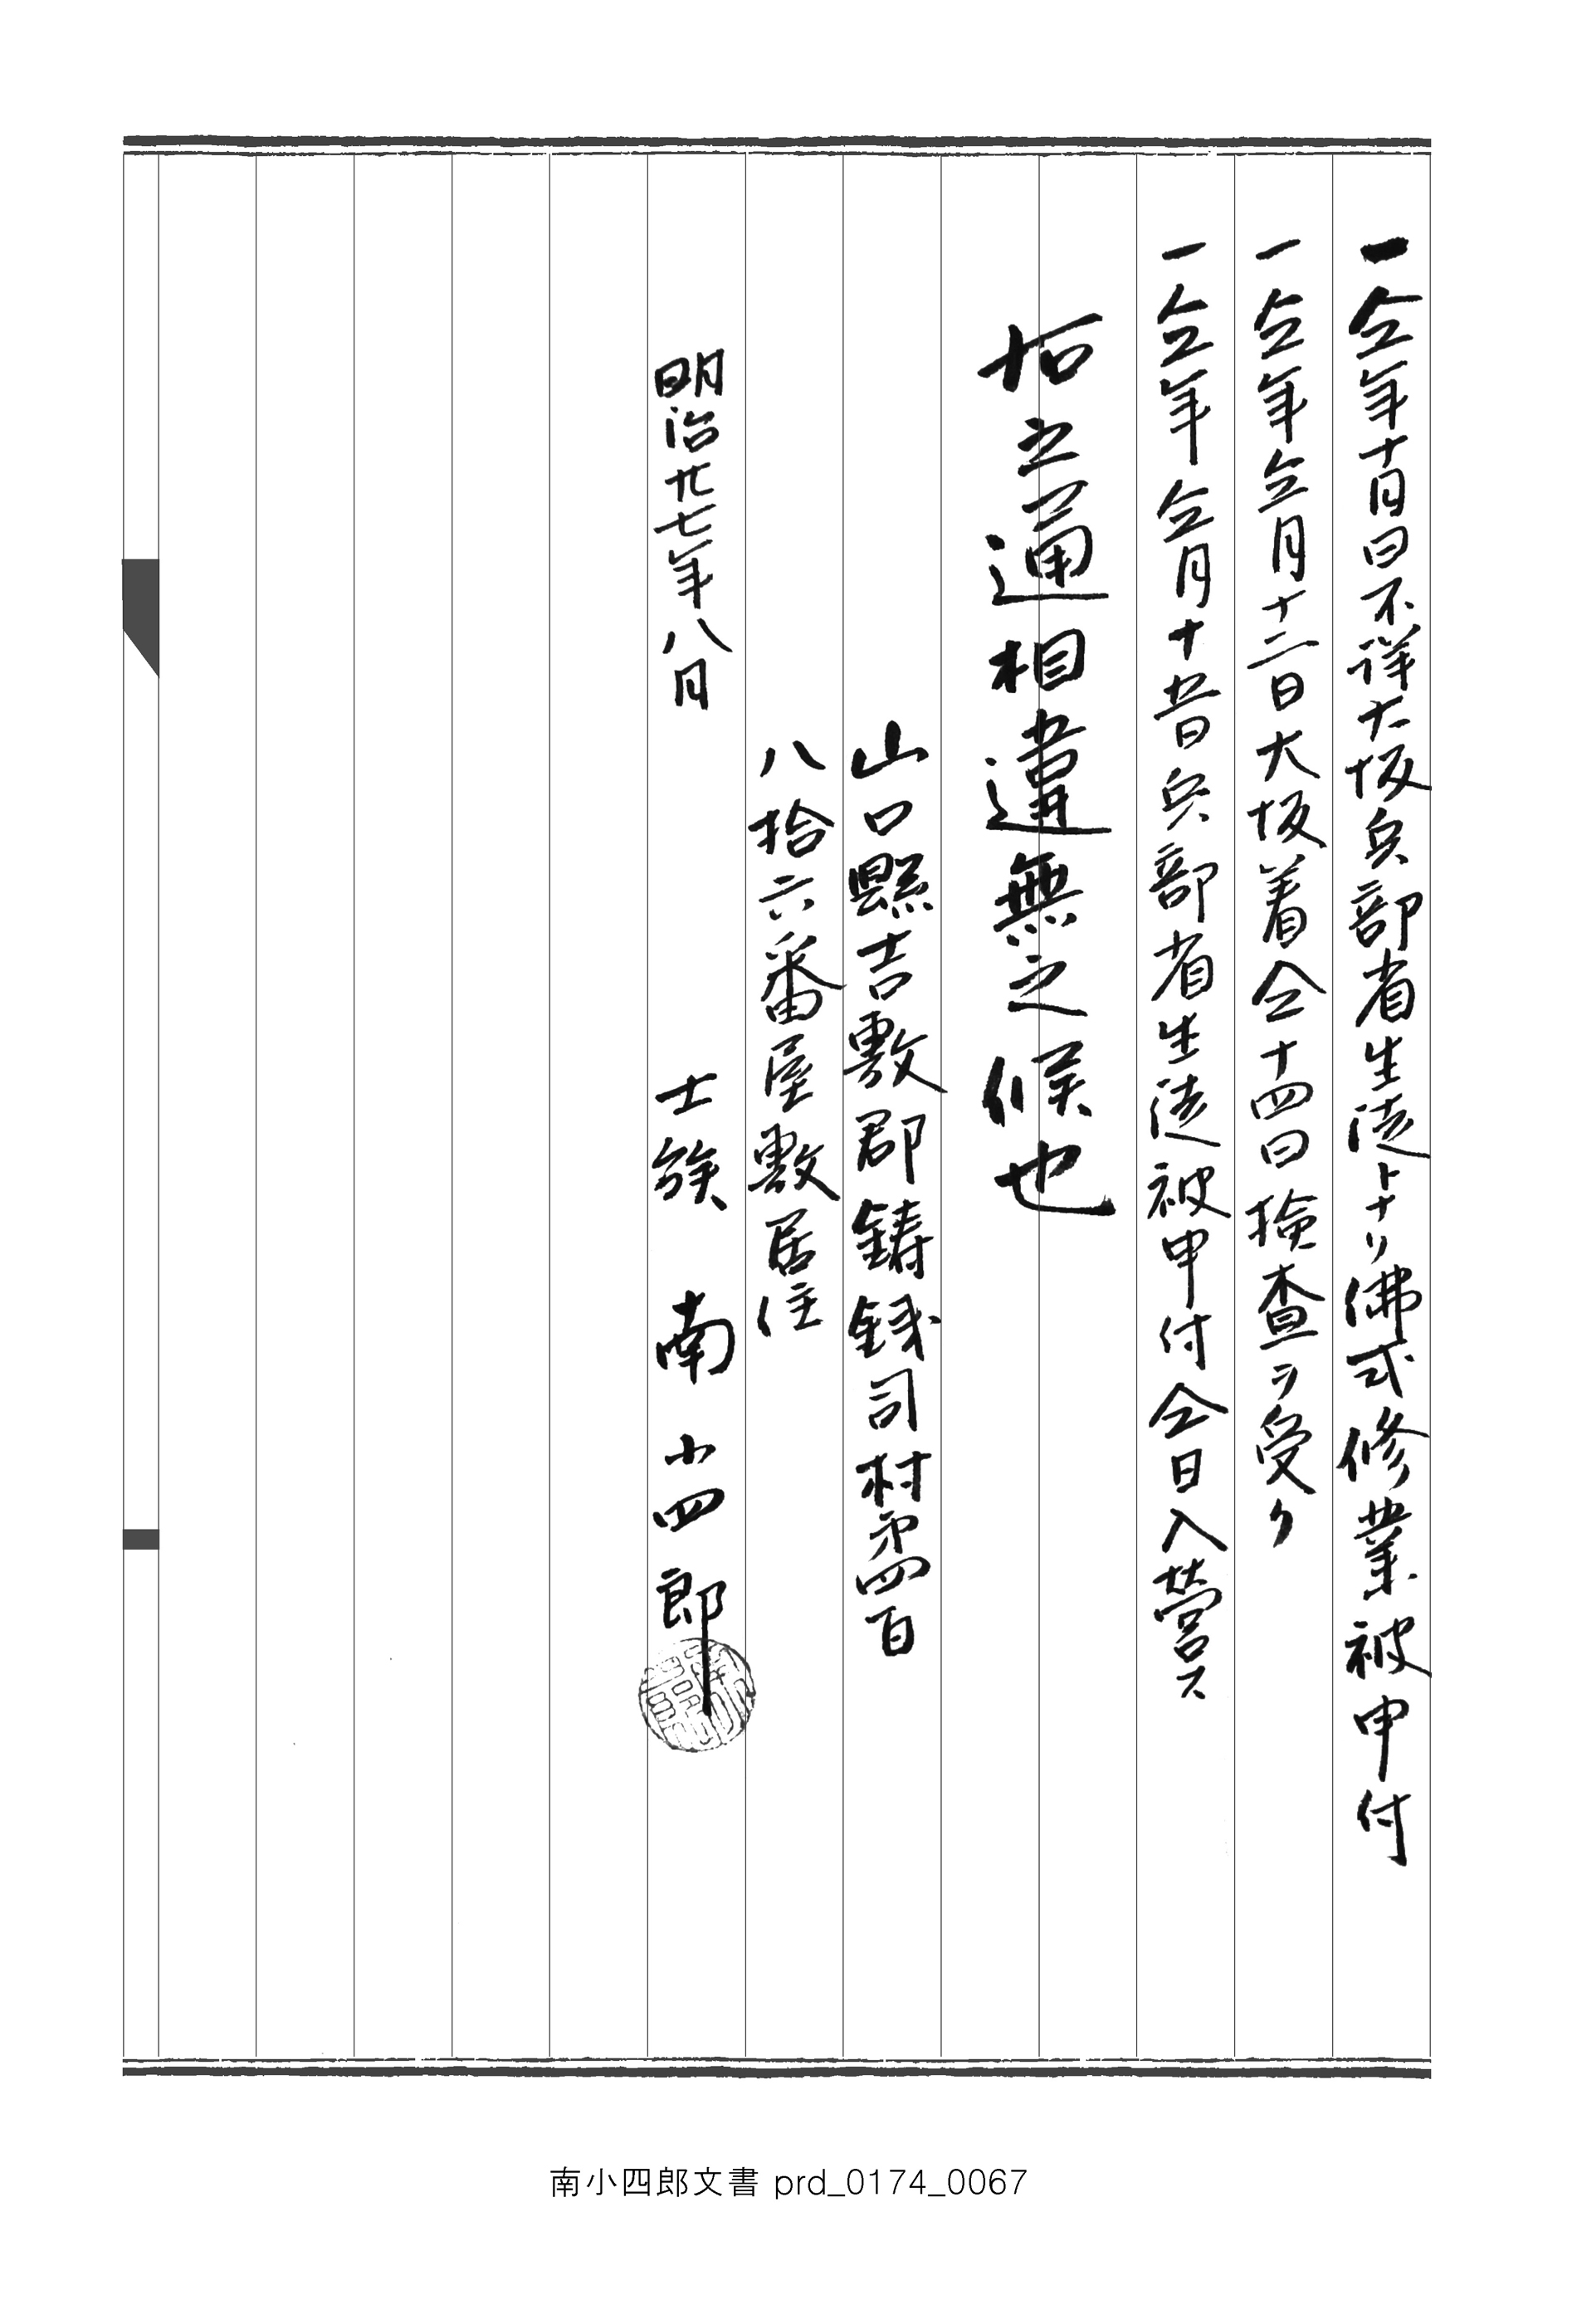 一仝年十月日不詳大坂兵部省生徒トナリ佛式修業被申付
一仝年仝月十二日大坂着仝十四日撿査ヲ受ク
一仝年仝月十五日兵部省生徒被申付仝日入營ス
右之通相違無之候也
山口縣吉敷郡鋳銭司村第四百
八拾六番屋敷居住
明治廿七年八月 士族 南小四郎
南小四郎文書 prd_0174_0067